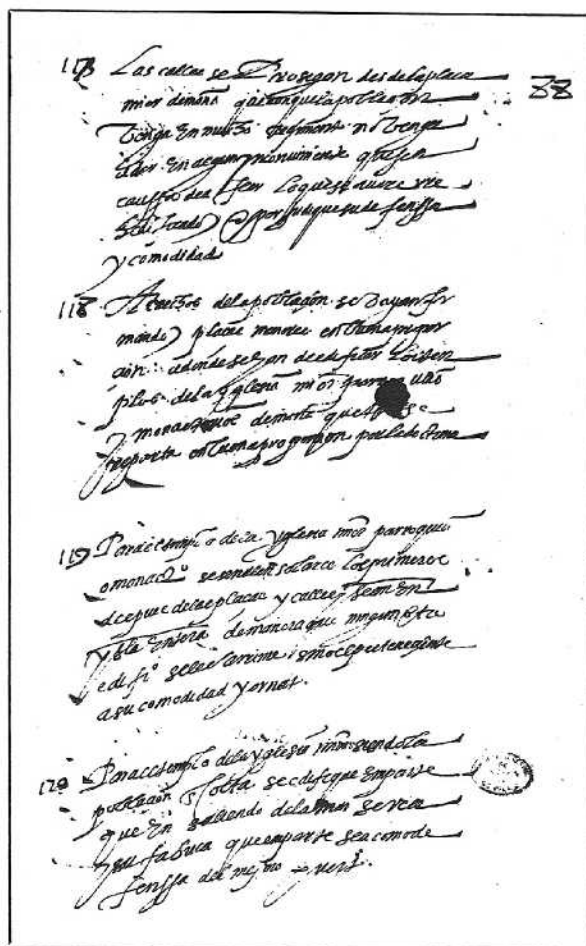 117 Las calles se Prosigan desde la plaça
maior de manª que aunque la poblaçion
Venga En mucho no Venga
a dar En algun inconueniente que sea
caussa de a fear Lo que se aure ree
dificado O perjudique su defenssa
y comodidad
88
118 A trechos de la poblaçion se Vayan for
mando plaças menores en buena propor
cion adonde se an de edificar Los tem
plos de la Yglesia maior parro
y monasterios de manª que
reparta en buena proporçion por la doctrina
119 Para el templo de la Yglesia maor parroquia
o monastº se señalen solares Los primeros
despues de las plaças y calles sean En
ysla Entera de manera que ningun otro
edifiº se le arrime sino el perteneçiente
a su comodidad y ornatº
120 Para el templo de la yglesia maor siendo la
poblaçion En Costa se edifique En parte
que En saliendo de la mar se vea
y su fabrica que en parte sea como de
fenssa del mesmo puerº